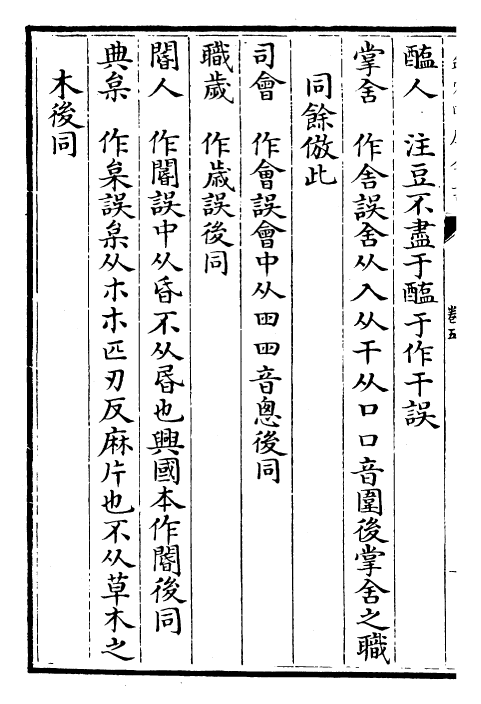 醢人　注豆不盡于醢于作干誤
掌舍　作舎誤舍从入从干从口口音圍後掌舍之職
同餘倣此
司會　作㑹誤會中从囬囬音恖後同
職歲　作歳誤後同
閽人　作闇誤中从昏不从昬也興國本作閽後同
典枲　作枲誤枲从朩朩匹刃反麻片也不从草木之
木後同
卷五